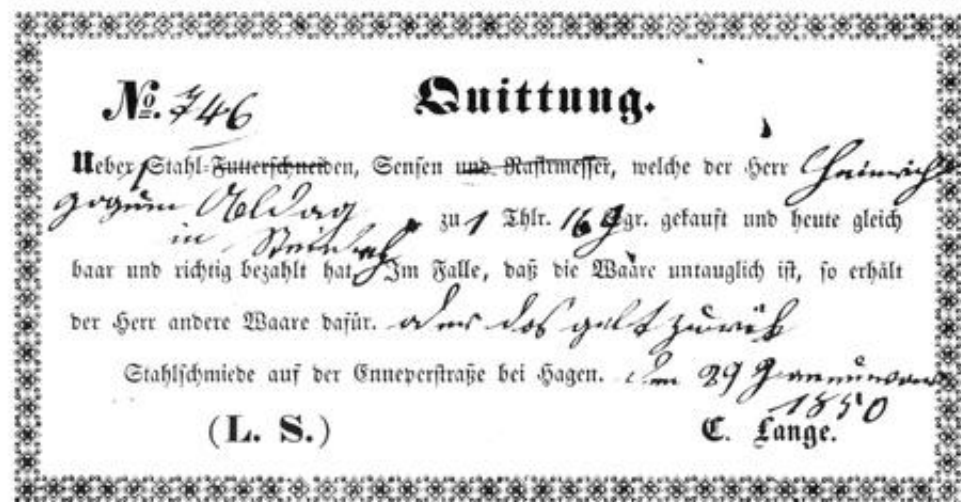 No. 746 Quittung.
Ueber 1 Stahl-Futterschneiden, Sensen und Rasirmesser, welche der Herr Heinrich
Oldag zu 1 Thlr. 16 Ggr. gekauft und heute gleich
in
baar und richtig bezahlt hat. Im Falle, daß die Waare untauglich ist, so erhält
der Herr andere Waare dafür. oder das gelt zurük
Stahlschmiede auf der Enneperstraße bei Hagen. den 29 Jannuwar
1850
(L. S.) C. Lange.